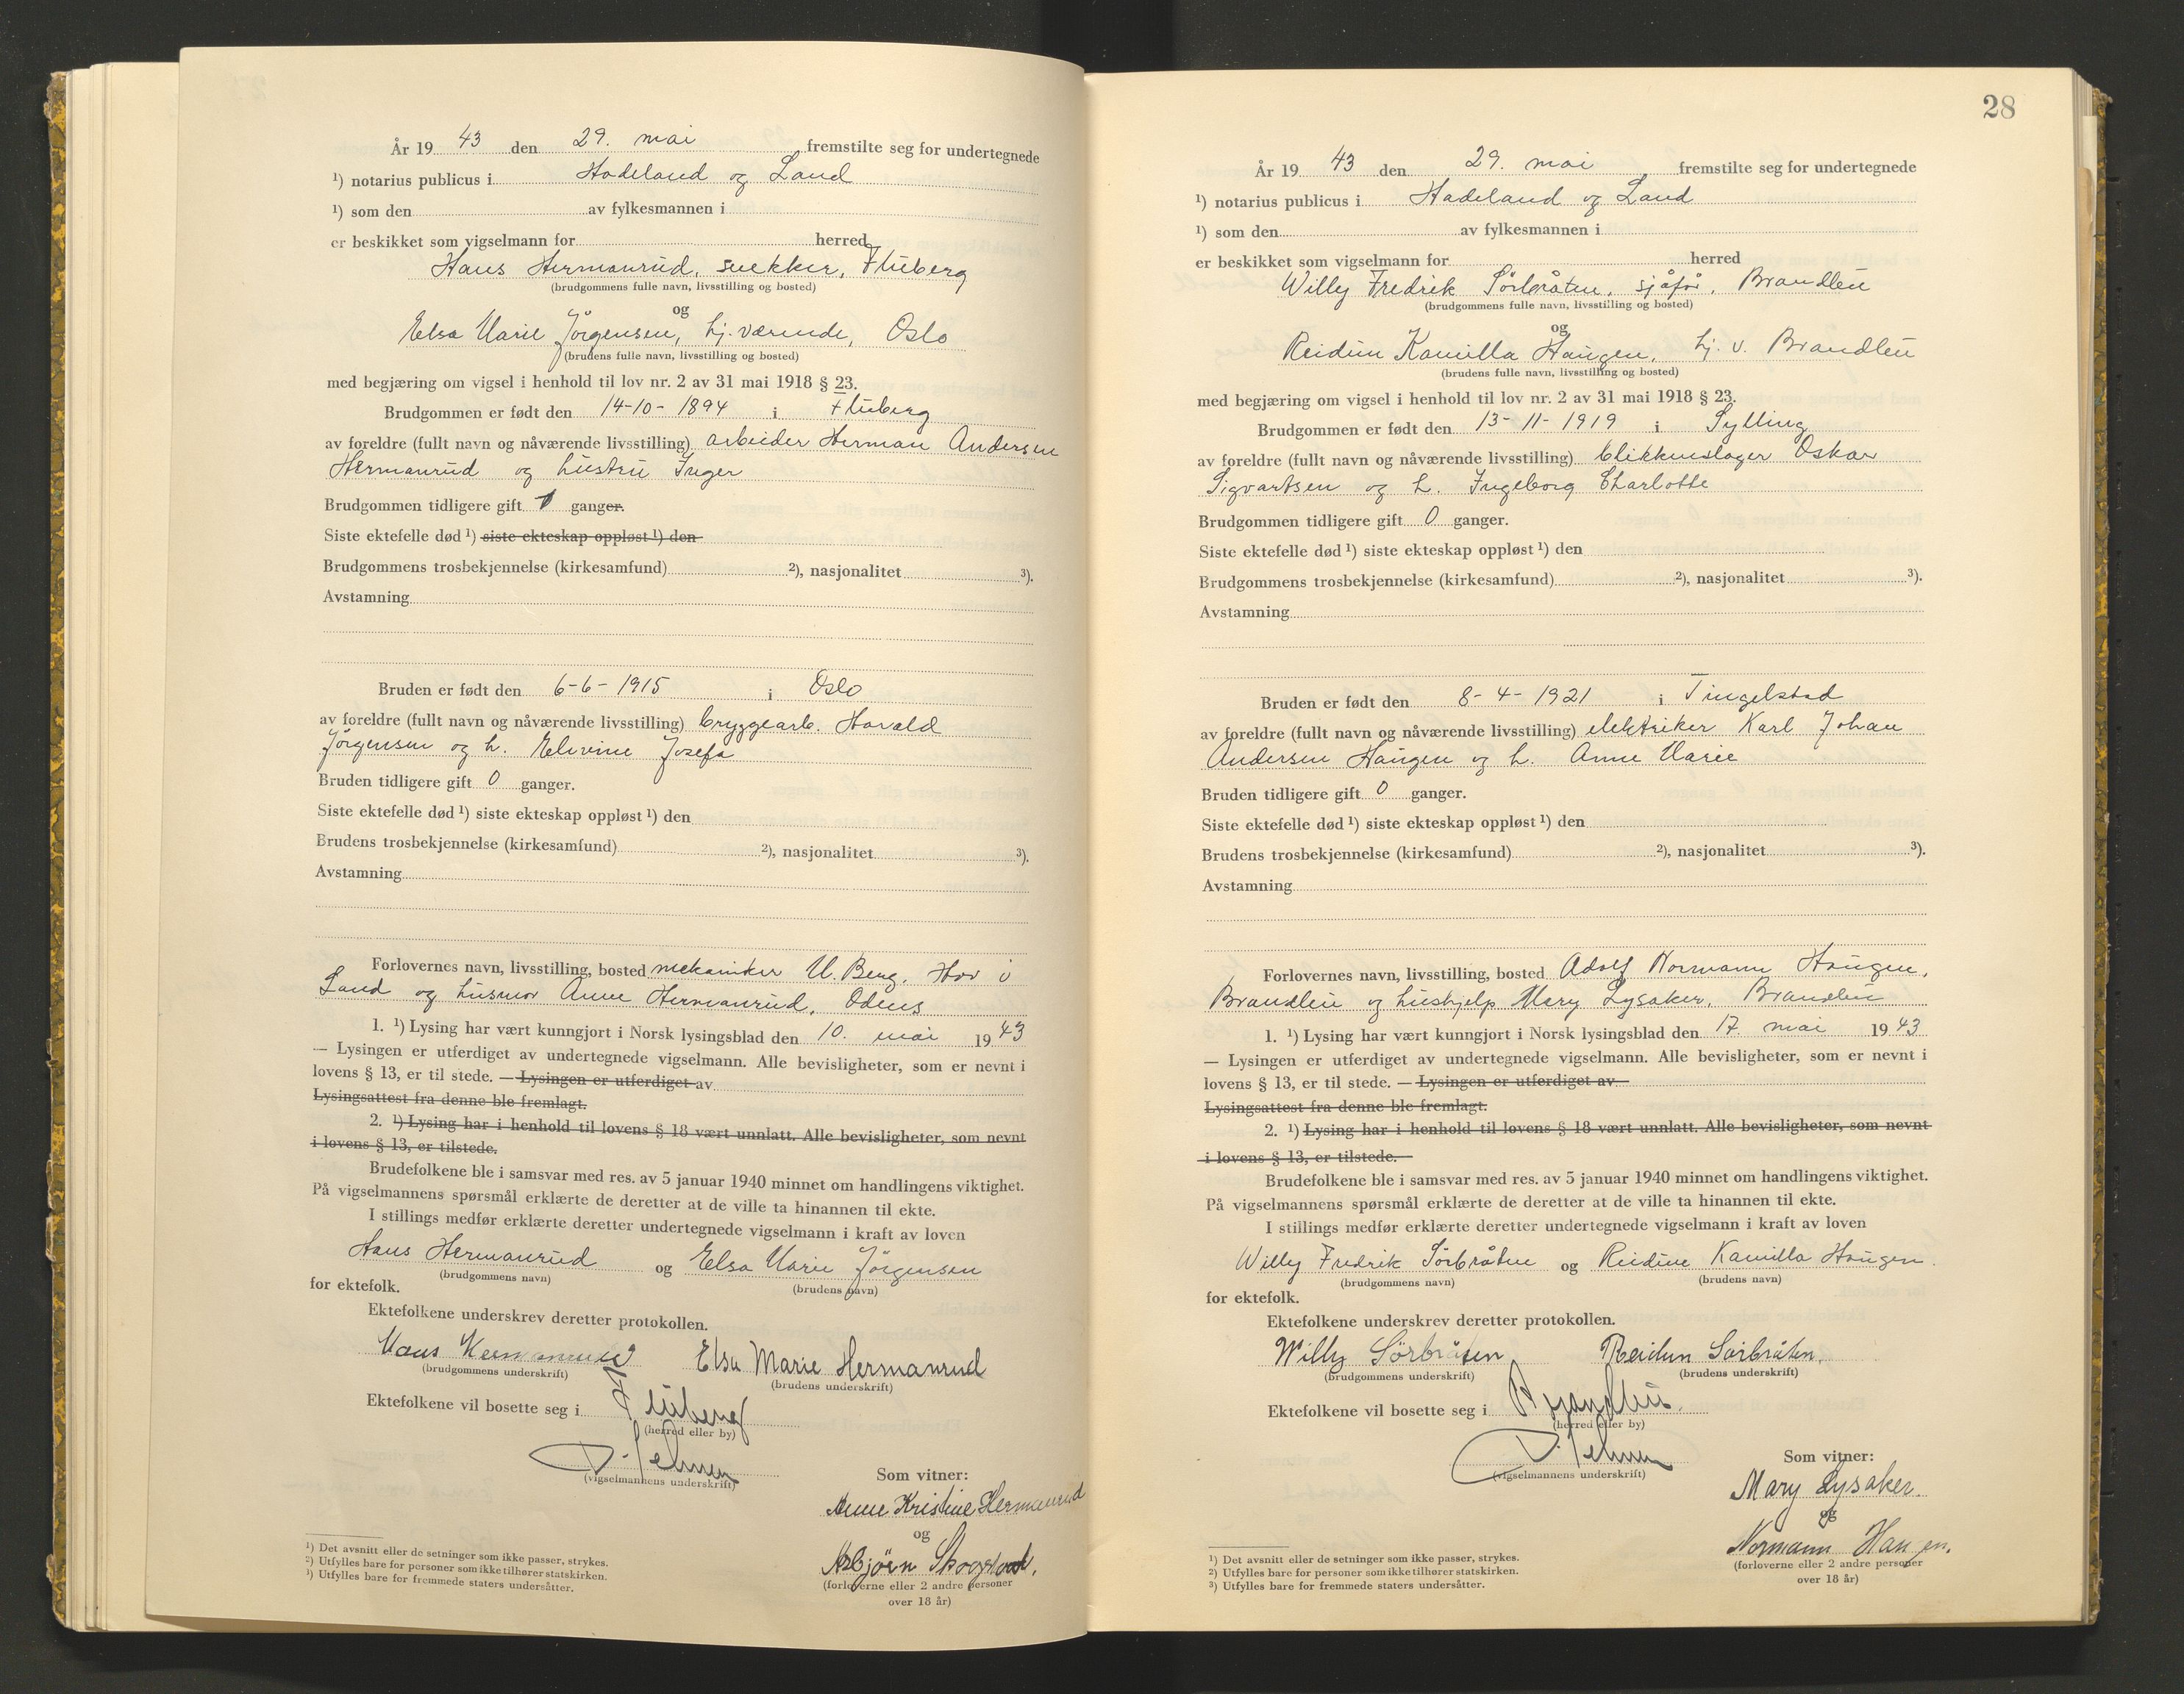 År 19 43 den 29. mai fremstilte seg for undertegnede
¹) notarius publicus i Hadeland og Land
¹) som den av fylkesmannen i
er beskikket som vigselmann for herred
Hans Hermanrud, snekker, Fluberg
(brudgommens fulle navn, livsstilling og bosted)
og
Elsa Marie Jörgensen, hj. værende, Oslo
(brudens fulle navn, livsstilling og bosted)
med begjæring om vigsel i henhold til lov nr. 2 av 31 mai 1918 § 23.
Brudgommen er født den 14-10-1894 i Fluberg
av foreldre (fullt navn og nåværende livsstilling) arbeider Herman Andersen
Hermanrud og hustru Inger
Brudgommen tidligere gift 1 ganger.
Siste ektefelle død ¹) siste ekteskap oppløst ¹) den
Brudgommens trosbekjennelse (kirkesamfund) ²), nasjonalitet ³).
Avstamning
Bruden er født den 6-6-1915 i Oslo
av foreldre (fullt navn og nåværende livsstilling) bryggearb. Harald
Jörgensen og h. Elivine Josefa
Bruden tidligere gift 0 ganger.
Siste ektefelle død ¹) siste ekteskap oppløst ¹) den
Brudens trosbekjennelse (kirkesamfund) ²), nasjonalitet ³).
Avstamning
Forlovernes navn, livsstilling, bosted mekaniker U. Berg, Hov i
Land og husmor Anne Hermanrud, Odens
1. ¹) Lysing har vært kunngjort i Norsk lysingsblad den 10. mai 1943
— Lysingen er utferdiget av undertegnede vigselmann. Alle bevisligheter, som er nevnt i
lovens § 13, er til stede. — Lysingen er utferdiget av
Lysingsattest fra denne ble fremlagt.
2. ¹) Lysing har i henhold til lovens § 18 vært unnlatt. Alle bevisligheter, som nevnt
i lovens § 13, er tilstede.
Brudefolkene ble i samsvar med res. av 5 januar 1940 minnet om handlingens viktighet.
På vigselmannens spørsmål erklærte de deretter at de ville ta hinannen til ekte.
I stillings medfør erklærte deretter undertegnede vigselmann i kraft av loven
Hans Hermanrud og Elsa Marie Jörgensen
(brudgommens navn) (brudens navn)
for ektefolk.
Ektefolkene underskrev deretter protokollen.
Hans Hermanrud Elsa Marie Hermanrud
(brudgommens underskrift) (brudens underskrift)
Ektefolkene vil bosette seg i Fluberg
(herred eller by)
(vigselmannens underskrift)
Som vitner:
Anne Kristine Hermanrud
og
Asbjörn
(forloverne eller 2 andre personer
over 18 år)
¹) Det avsnitt eller de setninger som ikke passer, strykes.
²) Utfylles bare for personer som ikke tilhører statskirken.
³) Utfylles bare for fremmede staters undersåtter.
28
År 19 43 den 29. mai fremstilte seg for undertegnede
¹) notarius publicus i Hadeland og Land
¹) som den av fylkesmannen i
er beskikket som vigselmann for herred
Willy Fredrik Sörbråten, sjåför, Brandbu
(brudgommens fulle navn, livsstilling og bosted)
og
Reidun Kamilla Haugen, hj. v. Brandbu
(brudens fulle navn, livsstilling og bosted)
med begjæring om vigsel i henhold til lov nr. 2 av 31 mai 1918 § 23.
Brudgommen er født den 13-11-1919 i Sylling
av foreldre (fullt navn og nåværende livsstilling) blikkenslager Oskar
Sigvartsen og h. Ingeborg Charlotte
Brudgommen tidligere gift 0 ganger.
Siste ektefelle død ¹) siste ekteskap oppløst ¹) den
Brudgommens trosbekjennelse (kirkesamfund) ²), nasjonalitet ³).
Avstamning
Bruden er født den 8-4-1921 i Tingelstad
av foreldre (fullt navn og nåværende livsstilling) elektriker Karl Johan
Andersen Haugen og h. Anne Marie
Bruden tidligere gift 0 ganger.
Siste ektefelle død ¹) siste ekteskap oppløst ¹) den
Brudens trosbekjennelse (kirkesamfund) ²), nasjonalitet ³).
Avstamning
Forlovernes navn, livsstilling, bosted Adolf Normann Haugen,
Brandbu og hushjelp Mary Lysaker, Brandbu
1. ¹) Lysing har vært kunngjort i Norsk lysingsblad den 17. mai 1943
— Lysingen er utferdiget av undertegnede vigselmann. Alle bevisligheter, som er nevnt i
lovens § 13, er til stede. — Lysingen er utferdiget av
Lysingsattest fra denne ble fremlagt.
2. ¹) Lysing har i henhold til lovens § 18 vært unnlatt. Alle bevisligheter, som nevnt
i lovens § 13, er tilstede.
Brudefolkene ble i samsvar med res. av 5 januar 1940 minnet om handlingens viktighet.
På vigselmannens spørsmål erklærte de deretter at de ville ta hinannen til ekte.
I stillings medfør erklærte deretter undertegnede vigselmann i kraft av loven
Willy Fredrik Sörbråten og Reidun Kamilla Haugen
(brudgommens navn) (brudens navn)
for ektefolk.
Ektefolkene underskrev deretter protokollen.
Willy Sörbråten Reidun Sörbråten.
(brudgommens underskrift) (brudens underskrift)
Ektefolkene vil bosette seg i Brandbu.
(herred eller by)
(vigselmannens underskrift)
Som vitner:
Mary Lysaker.
og
Normann Haugen.
(forloverne eller 2 andre personer
over 18 år)
¹) Det avsnitt eller de setninger som ikke passer, strykes.
²) Utfylles bare for personer som ikke tilhører statskirken.
³) Utfylles bare for fremmede staters undersåtter.